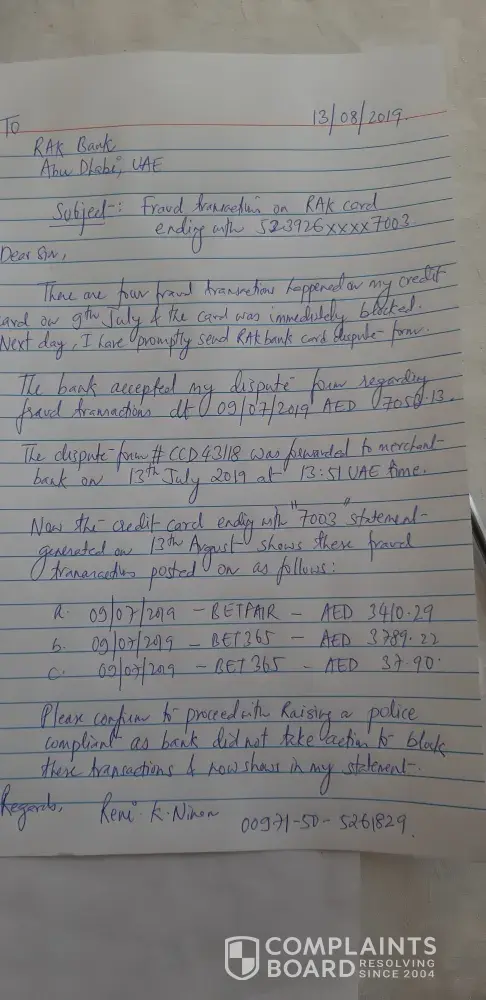 13/08/2019.
To
RAK Bank
Abu Dhabi, UAE
Subject-: Fraud transactions on RAK card
ending with 523926xxxx7003.
Dear Sir,
There are four fraud transactions happened on my credit
card on 9th July & the card was immediately blocked.
Next day, I have promptly send RAKbank card dispute form.
The bank accepted my dispute form regarding
fraud transactions dt 09/07/2019 AED 7058.13.
The dispute form # CCD43118 was forwarded to merchant
bank on 13th July 2019 at 13:51 UAE time.
Now the credit card ending with "7003" statement
generated on 13th August shows these fraud
transactions posted on as follows:
a. 09/07/2019 - BETFAIR - AED 3410.29
b. 09/07/2019 - BET365 - AED 3789.22
c. 09/07/2019 - BET365 - AED 37.90.
Please confirm to proceed with Raising a police
compliant as bank did not take action to block
these transactions & now shows in my statement.
Regards,
Reni K. Ninan
00971-50-5261829.
COMPLAINTS
BOARD RESOLVING
SINCE 2004